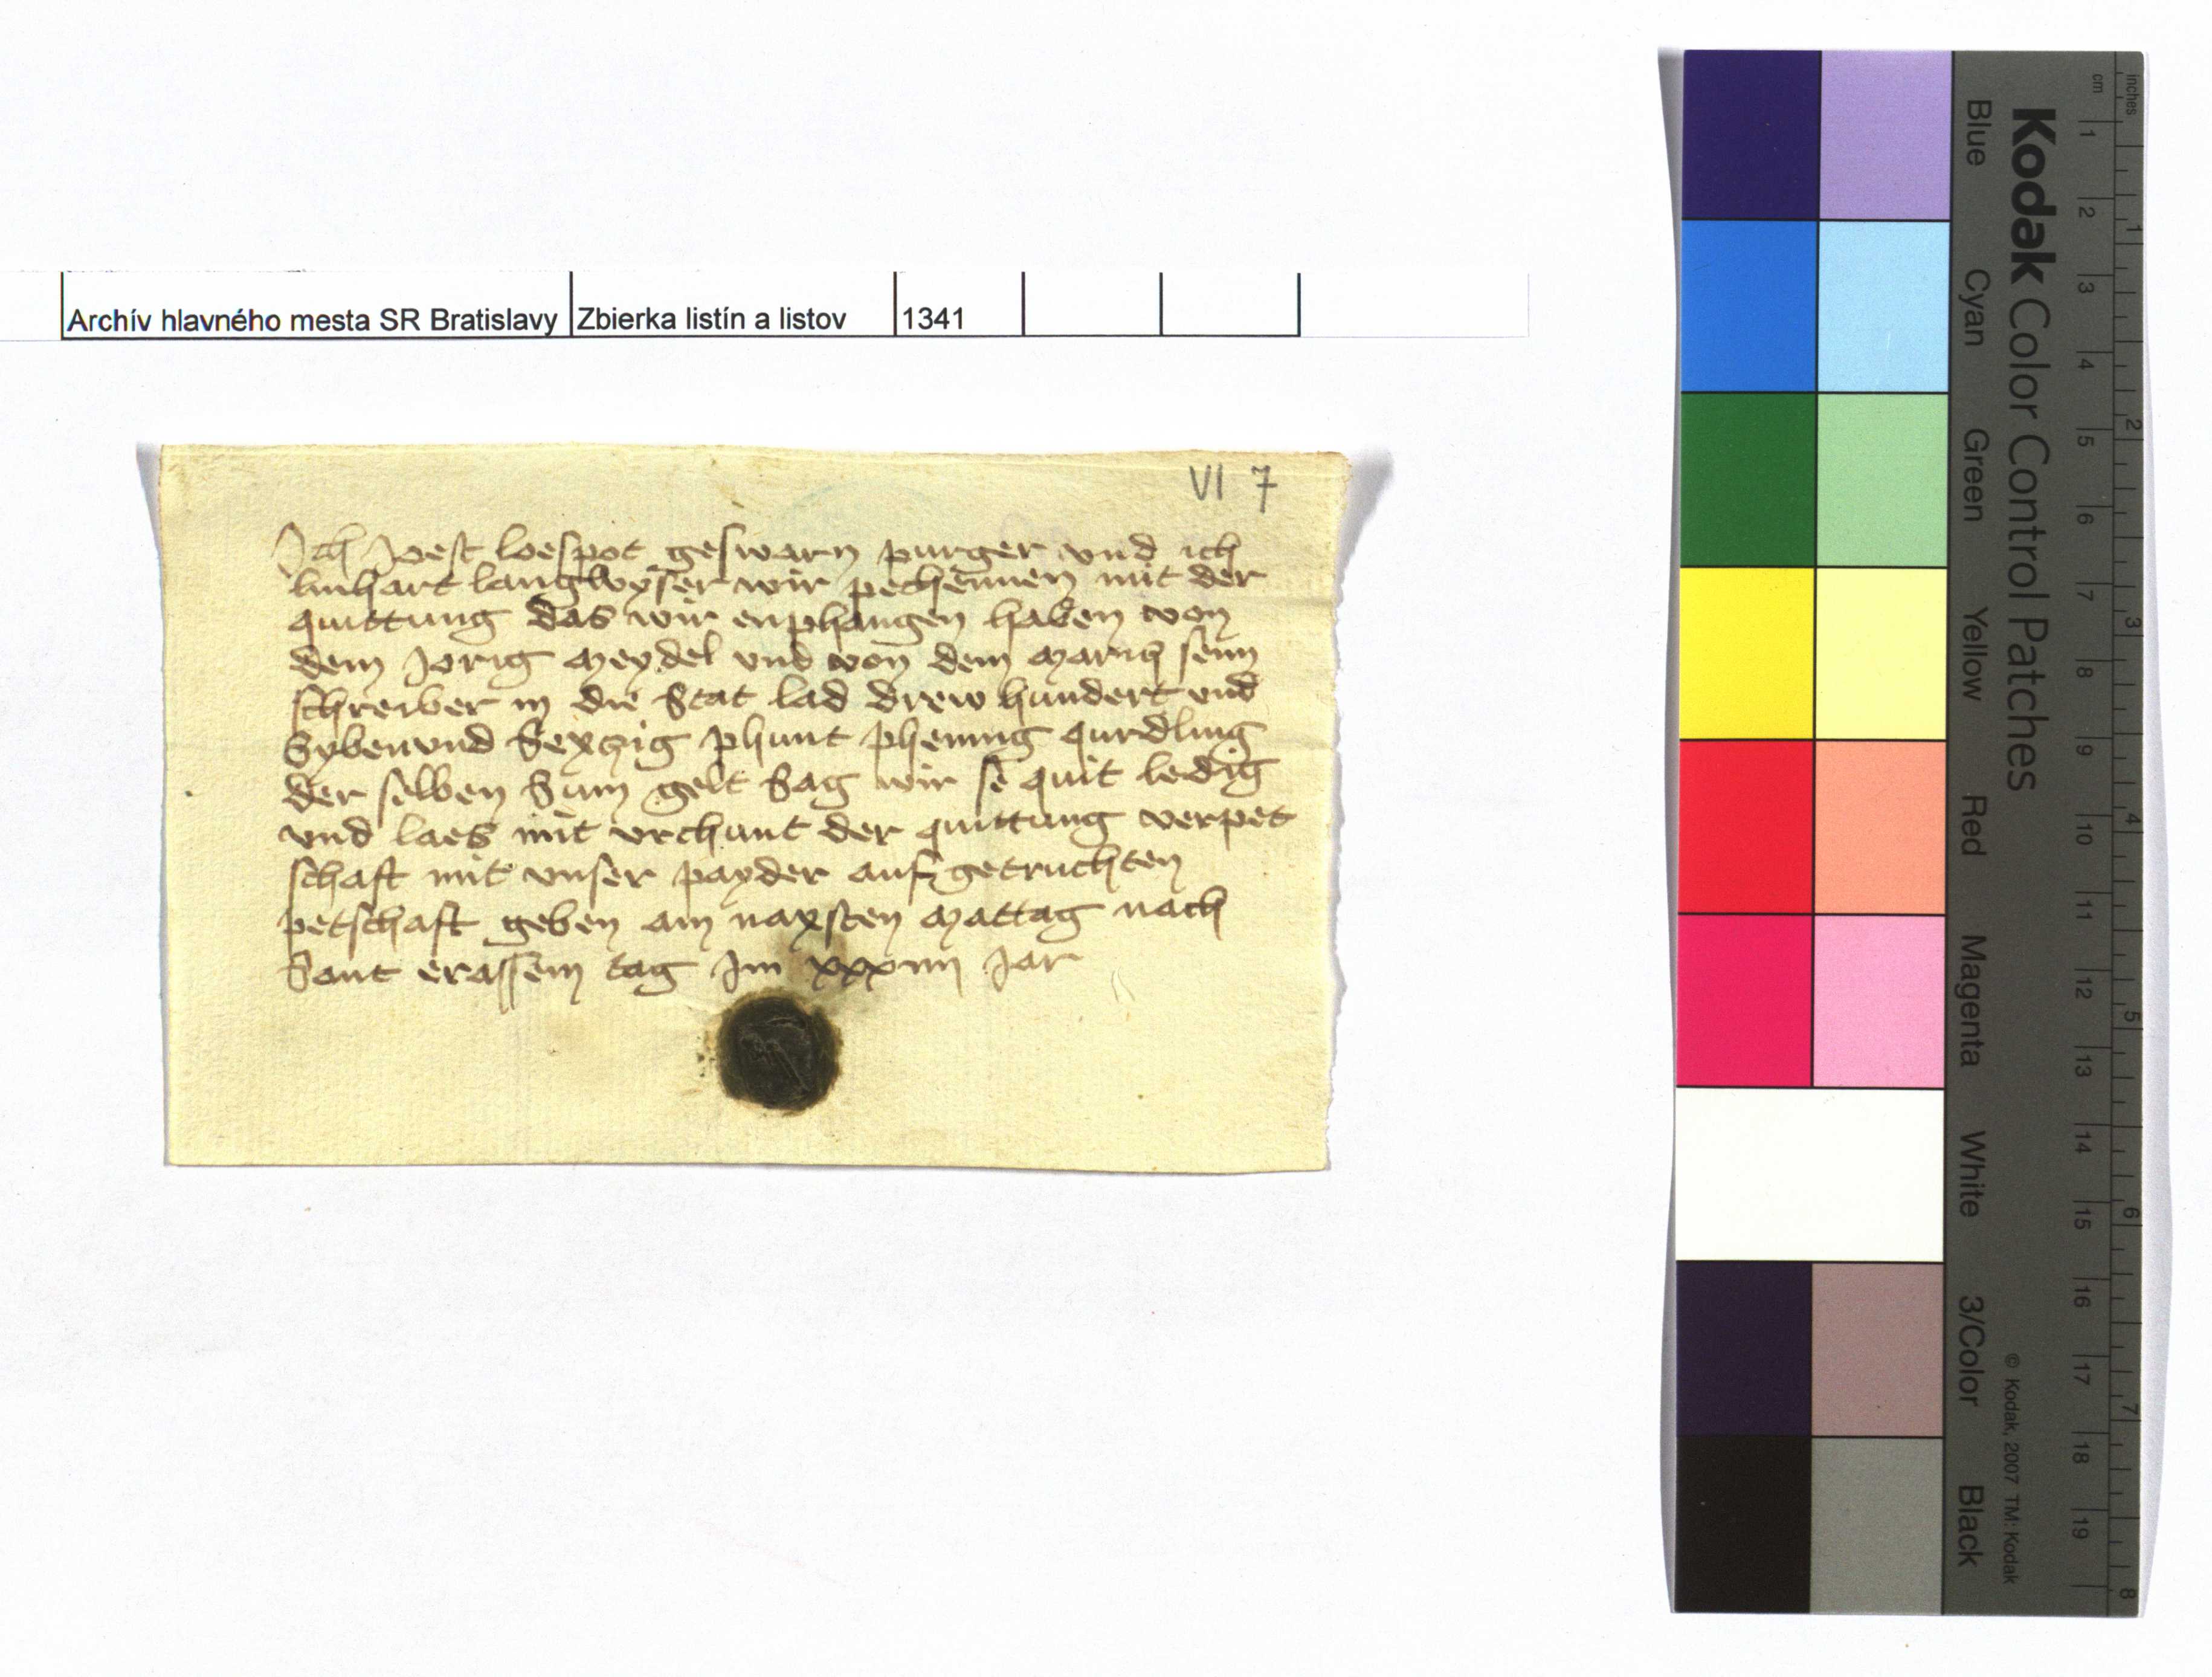 Archív hlavného mesta SR Bratislavy Zbierka listín a listov 1341
VI 7
Ich Jost loespot geswarn purger vnd ich
linhart langwyser wir pechennen mit der
quittung das wir enphangen haben von
dem Jorig Meydel vnd von dem
schreiber in die Stat lad drew hundert vnd
Sybenvnd Sexzig phunt phening qurdling
der selben Sum gelt Sag wir se quit ledig
vnd laes mit vrchunt der quittung verpet
schaft mit vnser payder auf getruchten
petschaft geben am naxsten Mattag nach
Sant erassem tag Im xxxiiii Jar
Kodak Color Control Patches
Blue Cyan Green Yellow Red Magenta White 3/Color Black
© Kodak, 2007 TM: Kodak
inches 1 2 3 4 5 6 7 8
cm 1 2 3 4 5 6 7 8 9 10 11 12 13 14 15 16 17 18 19